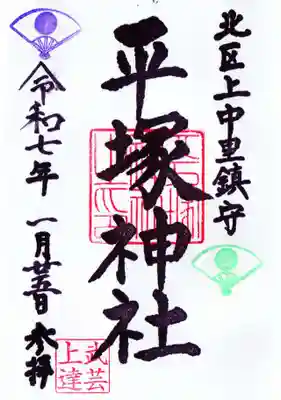 北区上中里鎮守
平塚神社
令和七年 一月廿五日 奉拝
武芸
上達